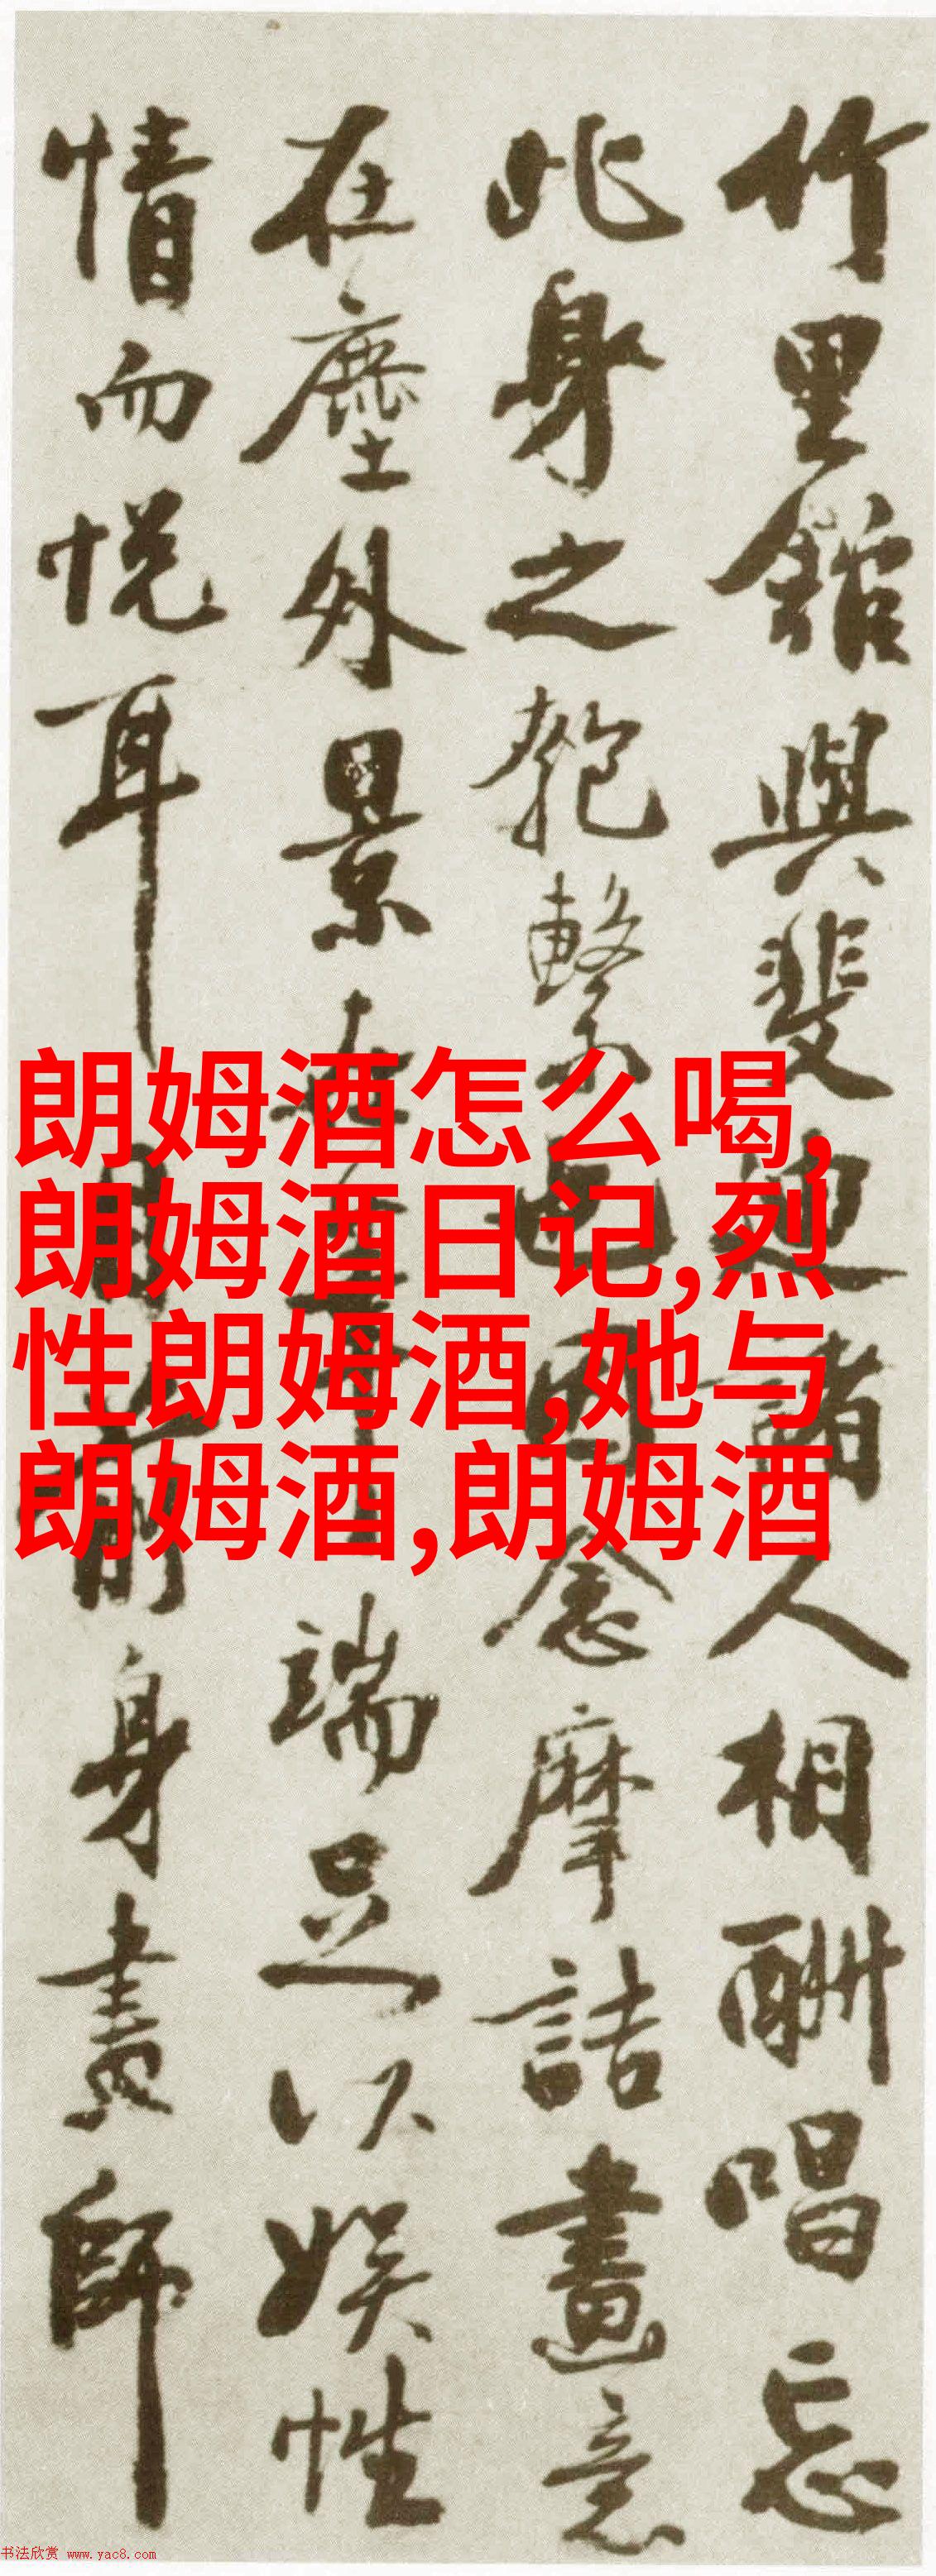 竹里館與斐迪諸人相酬唱忘
此身之匏繫也因念摩詰畫意
在塵外景端足以娛性
情而悅耳前身畫師
朗姆酒怎么喝,
朗姆酒日记,烈
性朗姆酒,她与
朗姆酒,朗姆酒
书法欣赏 www.yac8.com